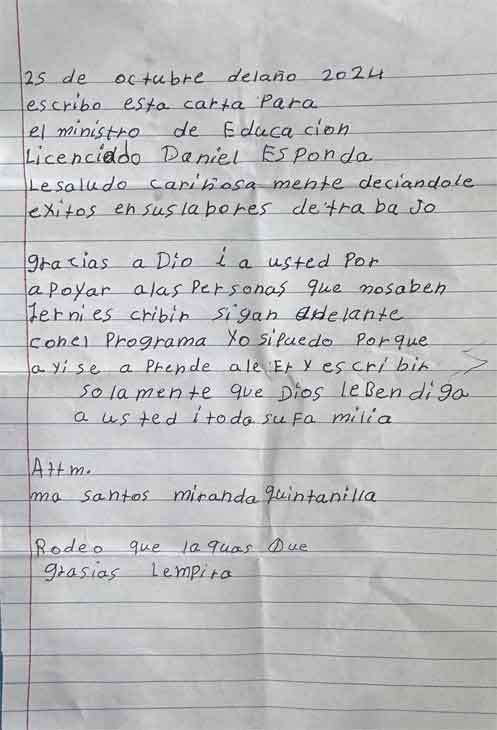 25 de octubre delaño 2024
escribo esta carta Para
el ministro de Educacion
Licenciado Daniel Esponda
Lesaludo cariñosa mente deciandole
exitos ensuslabores detraba Jo
gracias a Dio i a usted Por
apoyar alas Personas que nosaben
lerni es cribir sigan adelante
conel Programa Yo sipuedo Porque
a yi se a Prende aleEr Y escribir
solamente que Dios leBendiga
a usted itoda suFa milia
Attm.
ma santos miranda quintanilla
Rodeo que laguas Que
grasias Lempira